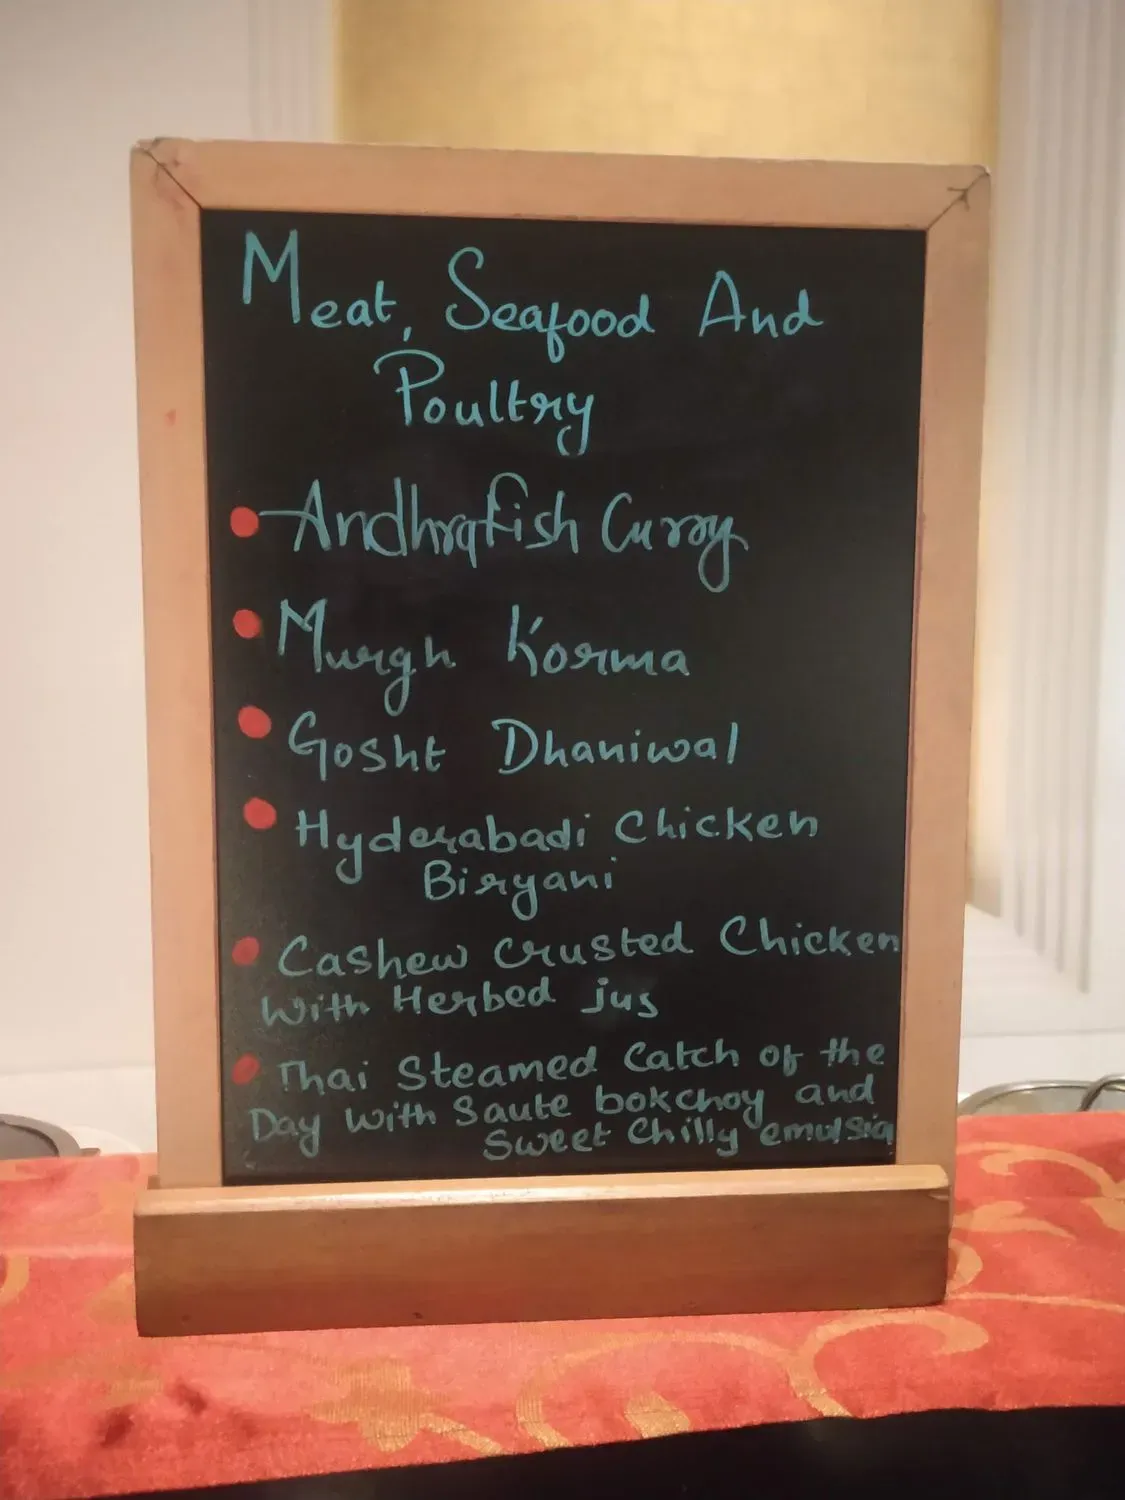 Meat, Seafood And
Poultry
Andhra fish Curry
Murgh Korma
Gosht Dhaniwal
Hyderabadi Chicken
Biryani
Cashew Crusted Chicken
With Herbed jus
Thai Steamed Catch of the
Day With Saute bokchoy and
Sweet Chilly emulsia